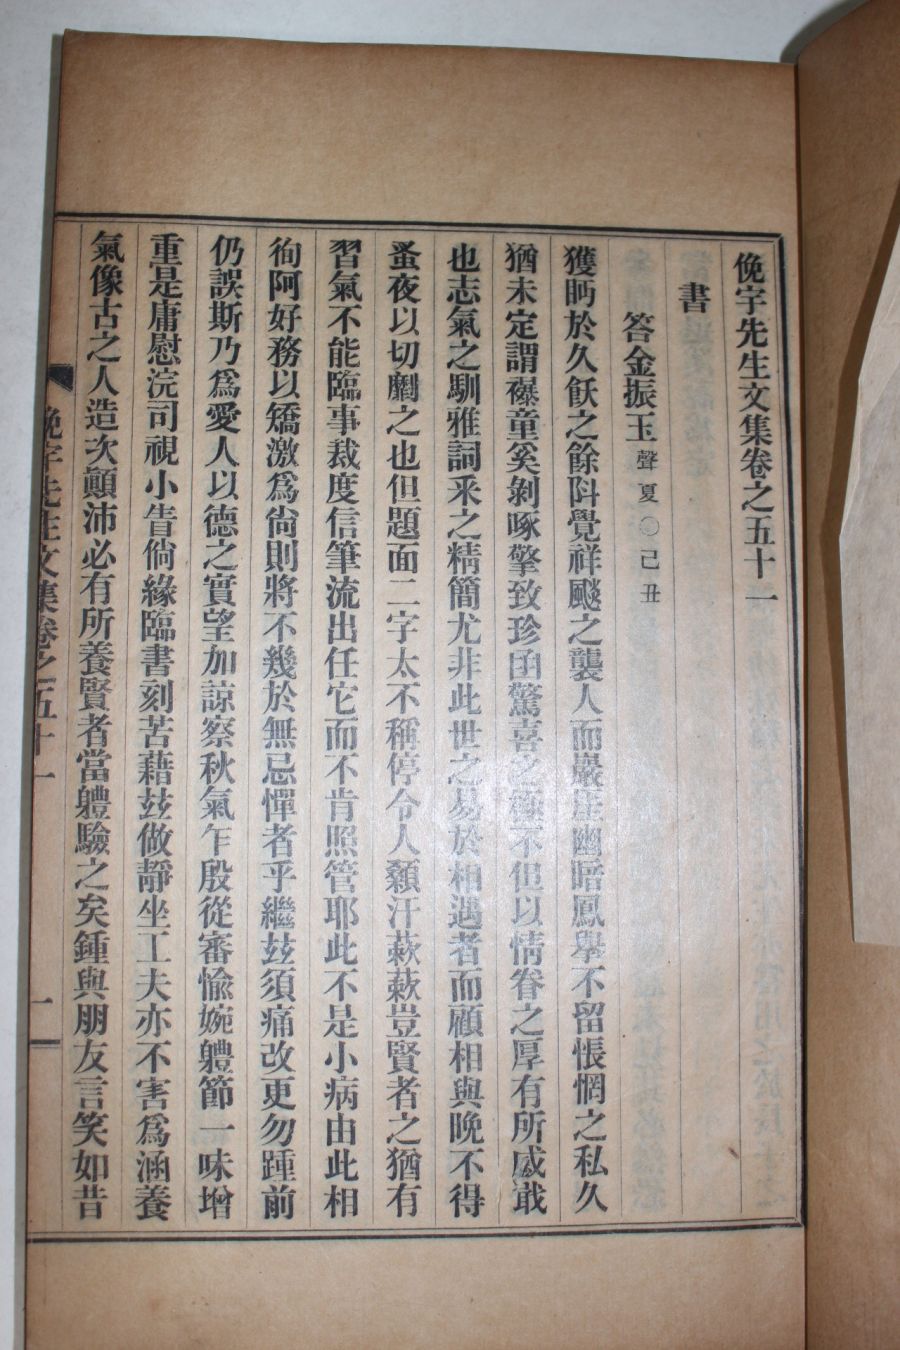 俛宇先生文集卷之五十一
書
答金振玉聲夏○己丑
獲眄於久飫之餘阧覺祥飈之襲人而巖厓幽暗鳳擧不留悵惘之私久
猶未定謂襮童奚剝啄擎致珍凾驚喜之極不但以情眷之厚有所感戢
也志氣之馴雅詞采之精簡尤非此世之易於相遇者而顧相與晩不得
蚤夜以切劘之也但題面二字太不稱停令人顙汗蔌蔌豈賢者之猶有
習氣不能臨事裁度信筆流出任它而不肯照管耶此不是小病由此相
徇阿好務以矯激爲尙則將不幾於無忌憚者乎繼玆須痛改更勿踵前
仍誤斯乃爲愛人以德之實望加諒察秋氣乍殷從審愉婉軆節一味增
重是庸慰浣司視小眚倘緣臨書刻苦藉玆做靜坐工夫亦不害爲涵養
氣像古之人造次顚沛必有所養賢者當軆驗之矣鍾與朋友言笑如昔
俛宇先生文集卷之五十一
一